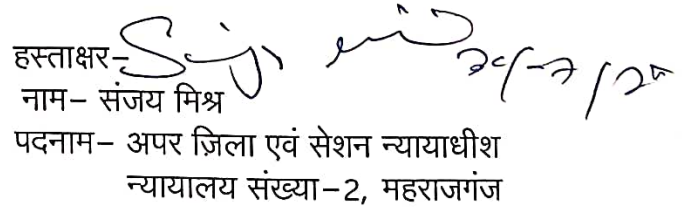 हस्ताक्षर–
नाम– संजय मिश्र
पदनाम– अपर ज़िला एवं सेशन न्यायाधीश
न्यायालय संख्या–2, महराजगंज